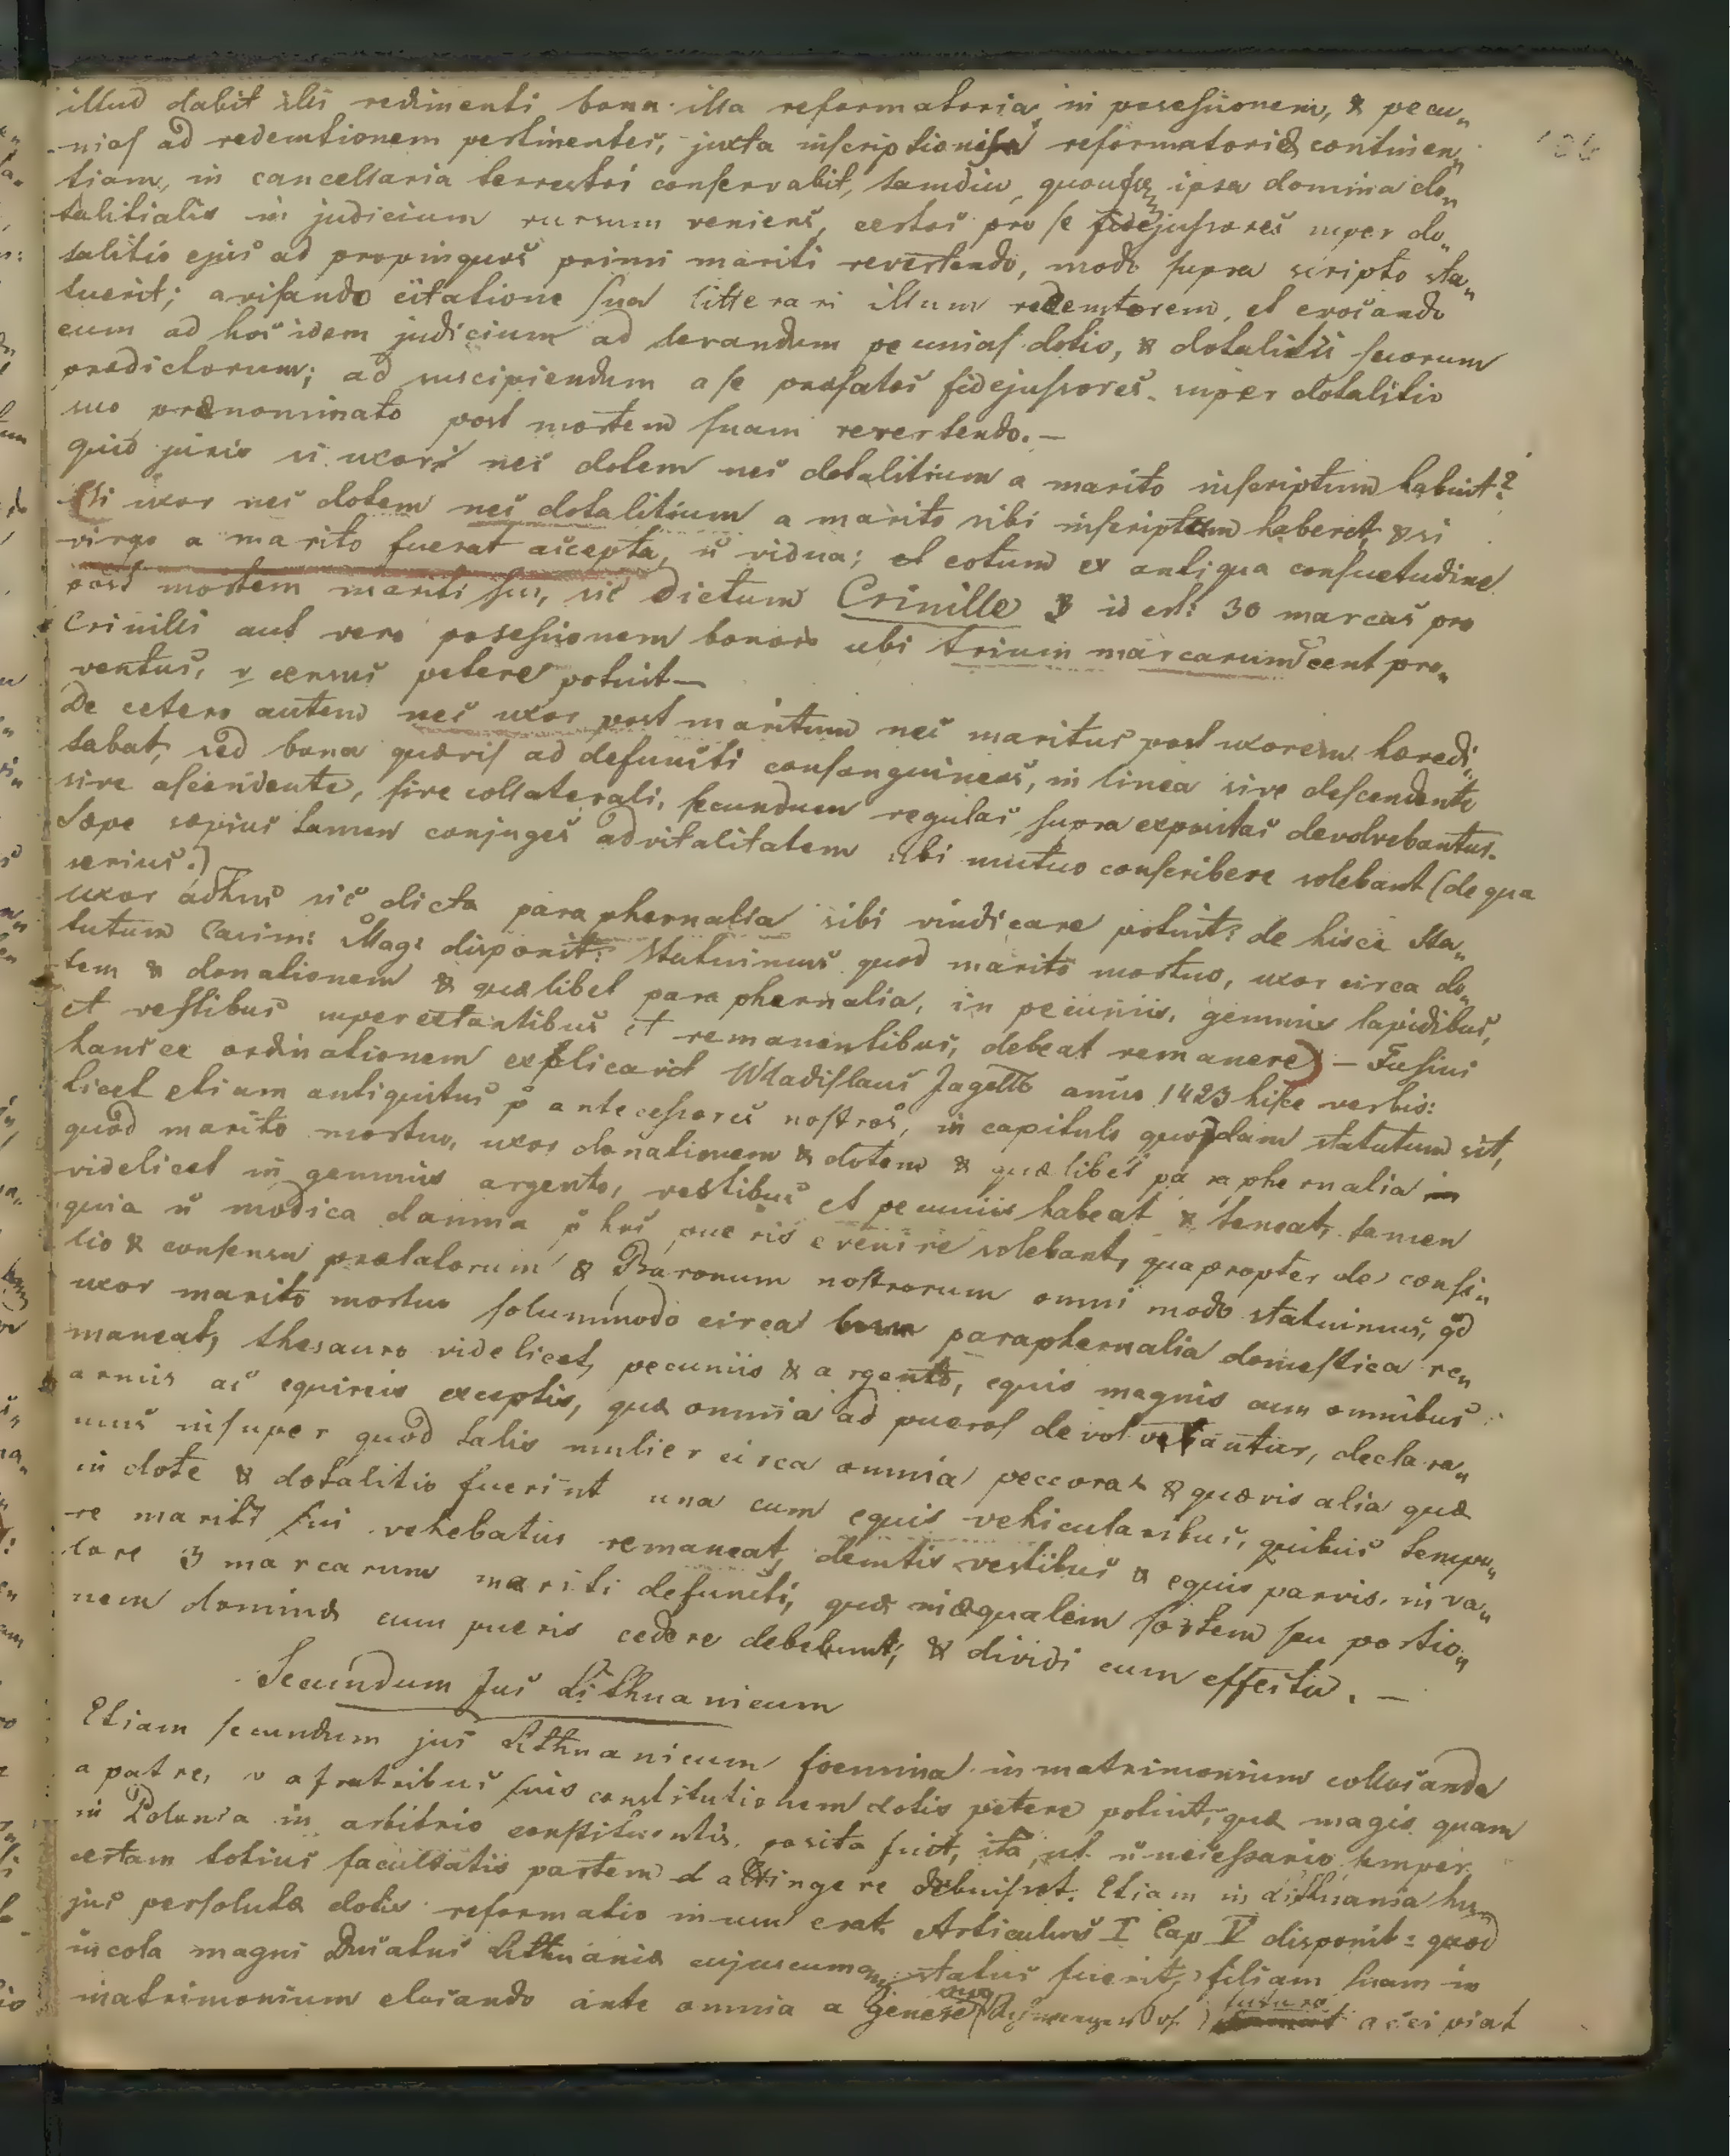 illud dabit illi redimenti bona illa reformatoria, in possessionem, & pecu„
nias ad redemtionem pertinentes, juxta inscriptionis reformatoriæ continen„
tiam, in cancellaria terrestri conservabit, tamdiu, quousq ipsa domina do„
talitialis in judicium rursum veniens, certos pro se fidejussores super do„
talitio ejus ad propinquos primi mariti revertendo, modo supra scripto sta„
tuerit; avisando citatione sua litterari illum redemtorem, et evocando
eum ad hoc idem judicium ad levandum pecunias dotis, & dotalitii suorum
predictorum; ad suscipiendum a se præfatos fidejussores super dotalitio
suo prænominato post mortem suam revertendo. —
quid juris si uxor nec dotem nec dotalitium a marito inscriptum habuit?
(Si uxor nec dotem nec dotalitium a marito sibi inscriptum haberet, & si
virgo a marito fuerat accepta, ñ vidua; et cotum ex antiqua consuetudine
post mortem mariti sui, sic dictum Crinille id est: 30 marcas pro
Crinilli aut vero possessionem bonor ubi trium marcarum cent pro„
ventus, v census petere potuit —
De cetero autem nec uxor post maritum nec maritus post uxorem hæredi„
tabat, sed bona quævis ad defuncti consanguineos, in linea sive descendente
sive ascendente, sive collaterali, secundum regulas supra expositas devolvebantur.
Sæpe sæpius tamen conjuges advitalitatem sibi mutuo conscribere solebant (de qua
serius.)
Uxor adhuc sic dicta paraphernalia sibi vindicare potuit: de hisce Sta„
tutum Casim: Mag: disponit: Statuimus quod marito mortuo, uxor circa do„
tem & donationem & quælibet paraphernalia, in pecuniis, gemmis lapidibus,
et vestibus superextantibus et remanentibus, debeat remanere) — Fusius
hancce ordinationem explicavit Wladislaus Jagello anno 1423 hisce verbis:
licet etiam antiquitus p antecessores nostros, in capitulo quodam statutum sit,
quod marito mortuo, uxor donationem & dotem & quælibet paraphernalia
videlicet in gemmis argento, vestibus et pecuniis habeat & teneat, tamen
quia ñ modica damna p hoc pueris evenire solebant, quapropter de consi„
lio & consensu prælatorum & Baronum nostrorum omni modo statuimus, qd
uxor marito mortuo solummodo circa paraphernalia domestica re„
maneat, thesauro videlicet, pecuniis & argento, equis magnis cum omnibus
armis ac equireis exceptis, quæ omnia ad pueros devolvantur, declara„
mus insuper quod talis mulier circa omnia peccora & quævis alia quæ
in dote & dotalitio fuerint una cum equis vehicularibus, quibus tempo„
re mariti sui vehebatur remaneat, demtis vestibus & equis parvis, in va„
lore 3 marcarum mariti defuncti, quæ in æqualem sortem seu portio„
nem dominæ cum pueris cedere debebunt, & dividi cum effectu. —
Secundum Jus Lithuanicum
Etiam secundum jus Lithuanicum foemina in matrimonium collocanda
a patre, v a fratribus suis constitutionem dotis petere potuit, quæ magis quam
in Polonia in arbitrio constituentis posita fuit, ita, ut ñ necessario semper
certam totius facultatis partem attingere debuisset. Etiam in Lithuania hu„
jus persolutæ dotis reformatio in usu erat. Articulus I Cap V disponit: quod
incola magni Ducatus Lithuaniæ cujuscumq status fuerit, filiam suam in
matrimonium elocando ante omnia a genere suo futuro accipiat